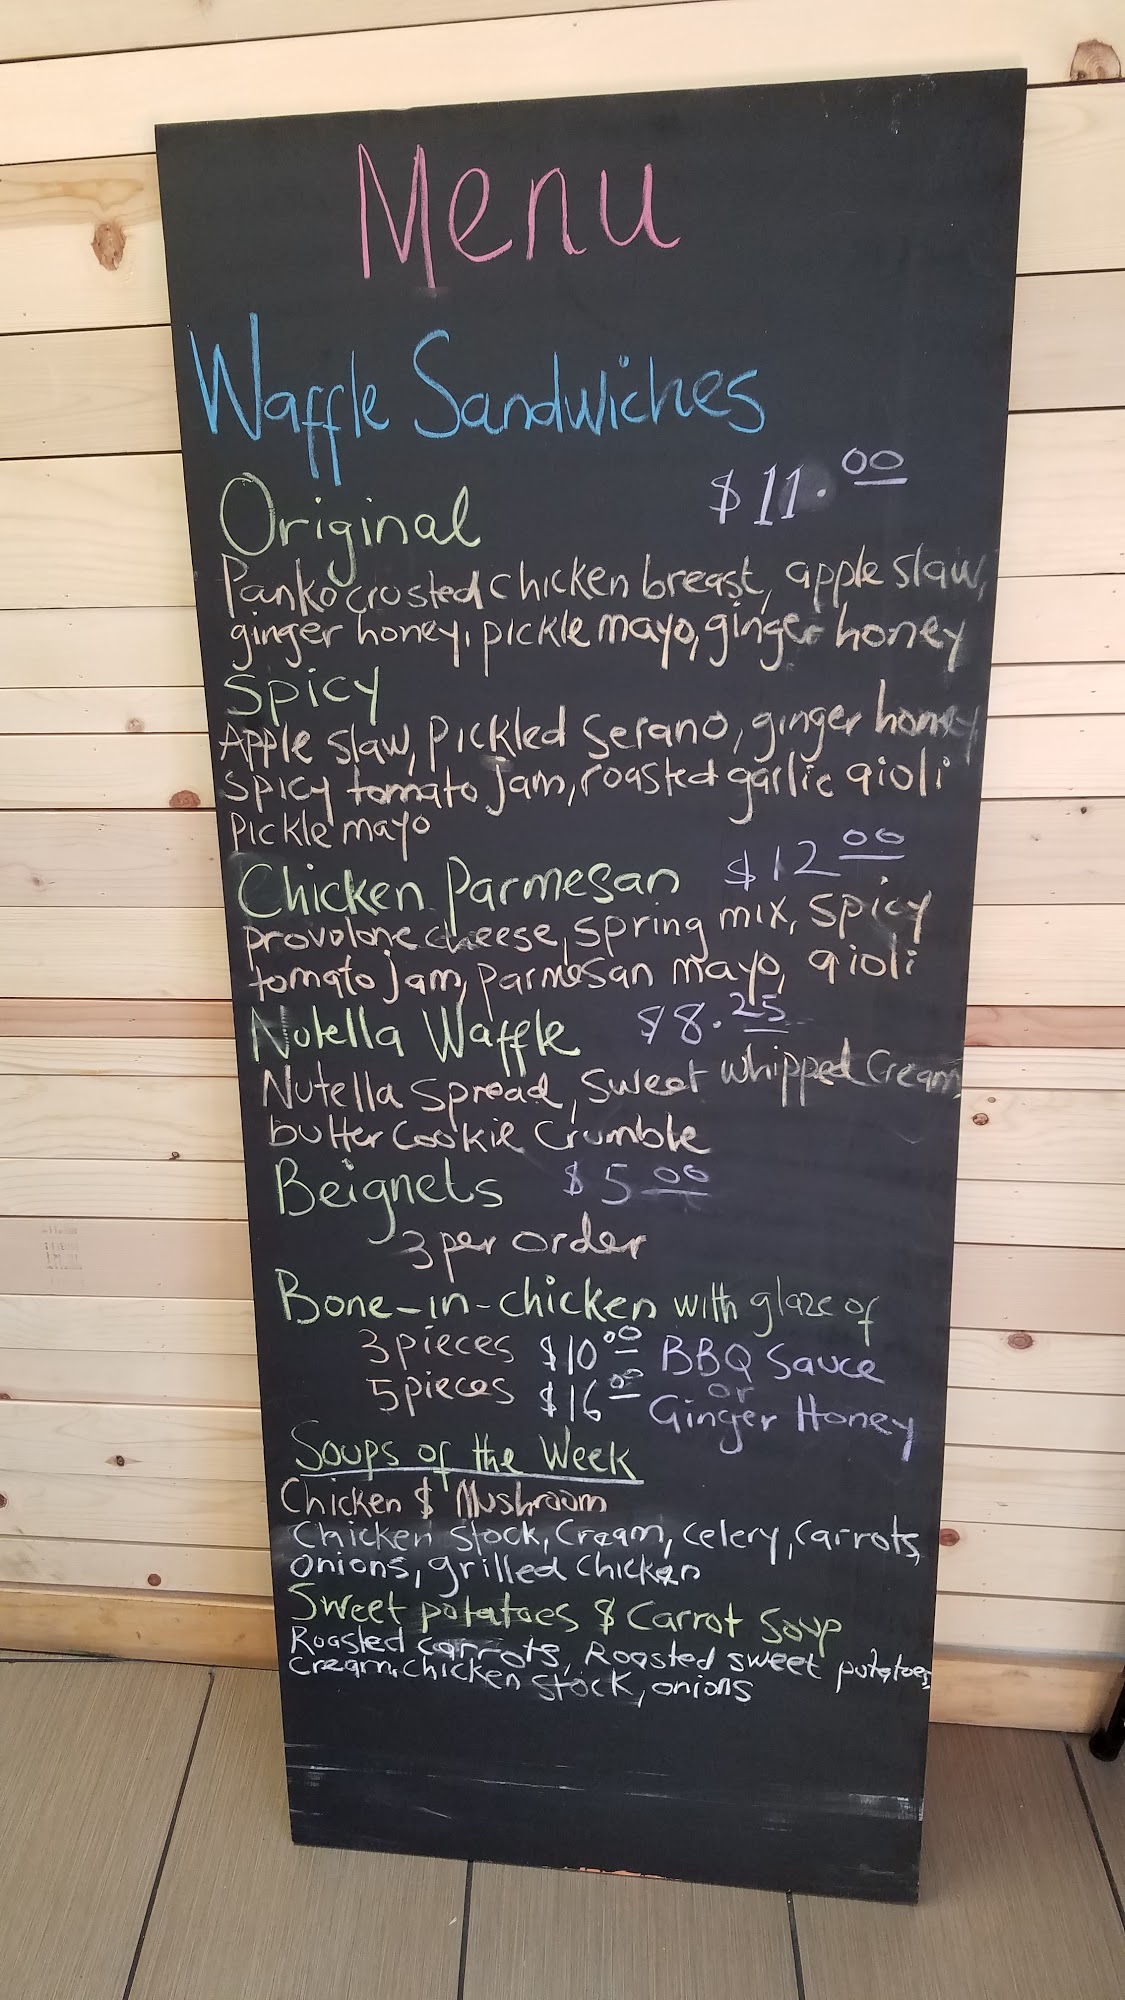 Menu
Waffle Sandwiches
Original $11.00
Panko crusted chicken breast, apple slaw,
ginger honey, pickle mayo, ginger honey
Spicy
Apple slaw, pickled Serano, ginger honey
spicy tomato jam, roasted garlic aioli
pickle mayo
Chicken Parmesan $12 00
provolone cheese, spring mix, spicy
tomato jam, parmesan mayo, aioli
Nutella Waffle $8.25
Nutella spread, sweet whipped cream
butter cookie crumble
Beignets $5 00
3 per order
Bone-in-chicken with glaze of
3 pieces $10 00 BBQ Sauce
or
5 pieces $16 00 Ginger Honey
Soups of the Week
Chicken & Mushroom
Chicken stock, Cream, celery, carrots,
Onions, grilled chicken
Sweet potatoes & Carrot Soup
Roasted carrots, Roasted sweet potatoes,
cream, chicken stock, onions